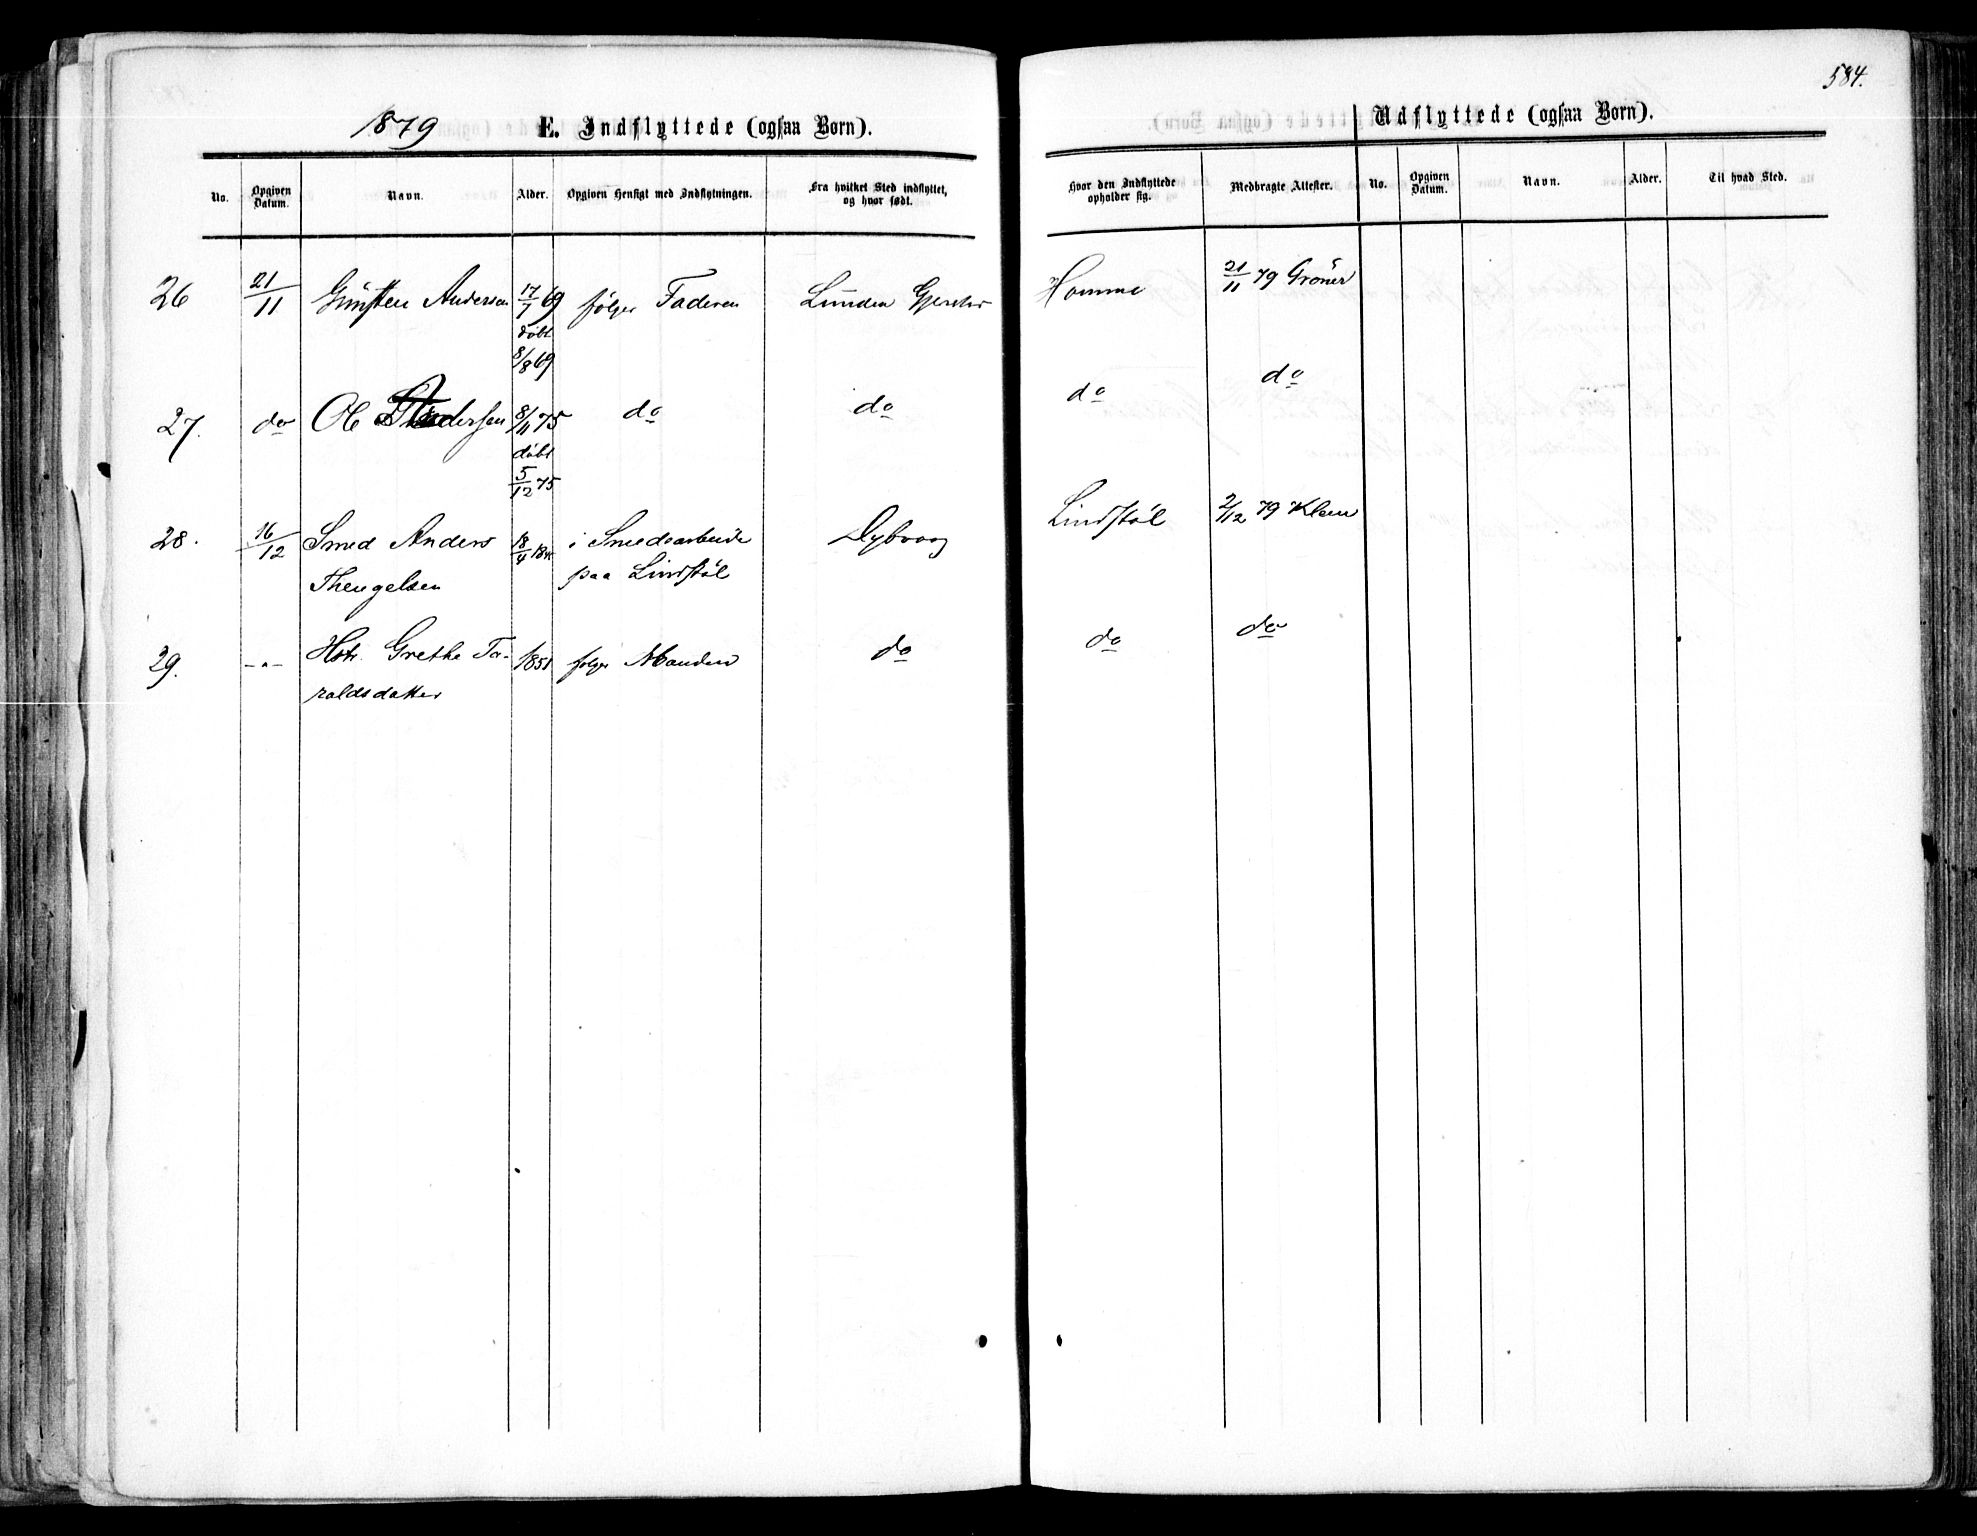 584.
1879 E. Indflyttede (ogsaa Børn).
Udflyttede (ogsaa Børn).
No. Opgiven Datum. Navn. Alder. Opgiven Hensigt med Indflytningen. Fra hvilket Sted indflyttet, og hvor født. Hvor den Indflyttede opholder sig. Medbragte Attester. No. Opgiven Datum. Navn. Alder. Til hvad Sted.
26 21/11 Gunsten Andersen 17/7 69 følger Faderen Lunden Homme 21/11 79 Grøner
døbt
8/8 69
27. do Ole Andersen 8/11 75 do do do do
døbt
5/12 75
28. 16/12 Smed Anders 18/4 i Smedearbeide Dybvaag Lindstøl 2/12 79 Klem
Thengelsen paa Lindstøl
29. -"- Hstr. Grethe Ta- 1851 følger Manden do do do
raldsdatter